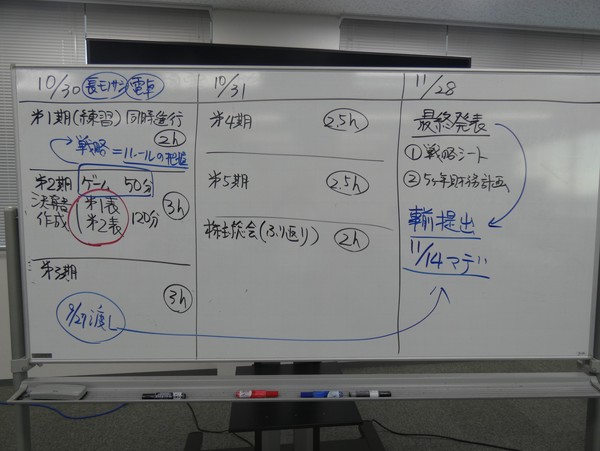 10/30 長モノサシ 電卓
第1期(練習) 同時進行
2h
戦略=ルールの把握
第2期 ゲーム 50分
決算書作成
第1表
第2表
120分
3h
第3期
3h
9/27渡し
10/31
第4期 2.5h
第5期 2.5h
株主総会(ふり返り) 2h
11/28
最終発表
①戦略シート
②5ヶ年
計画
事前提出
11/14マデ